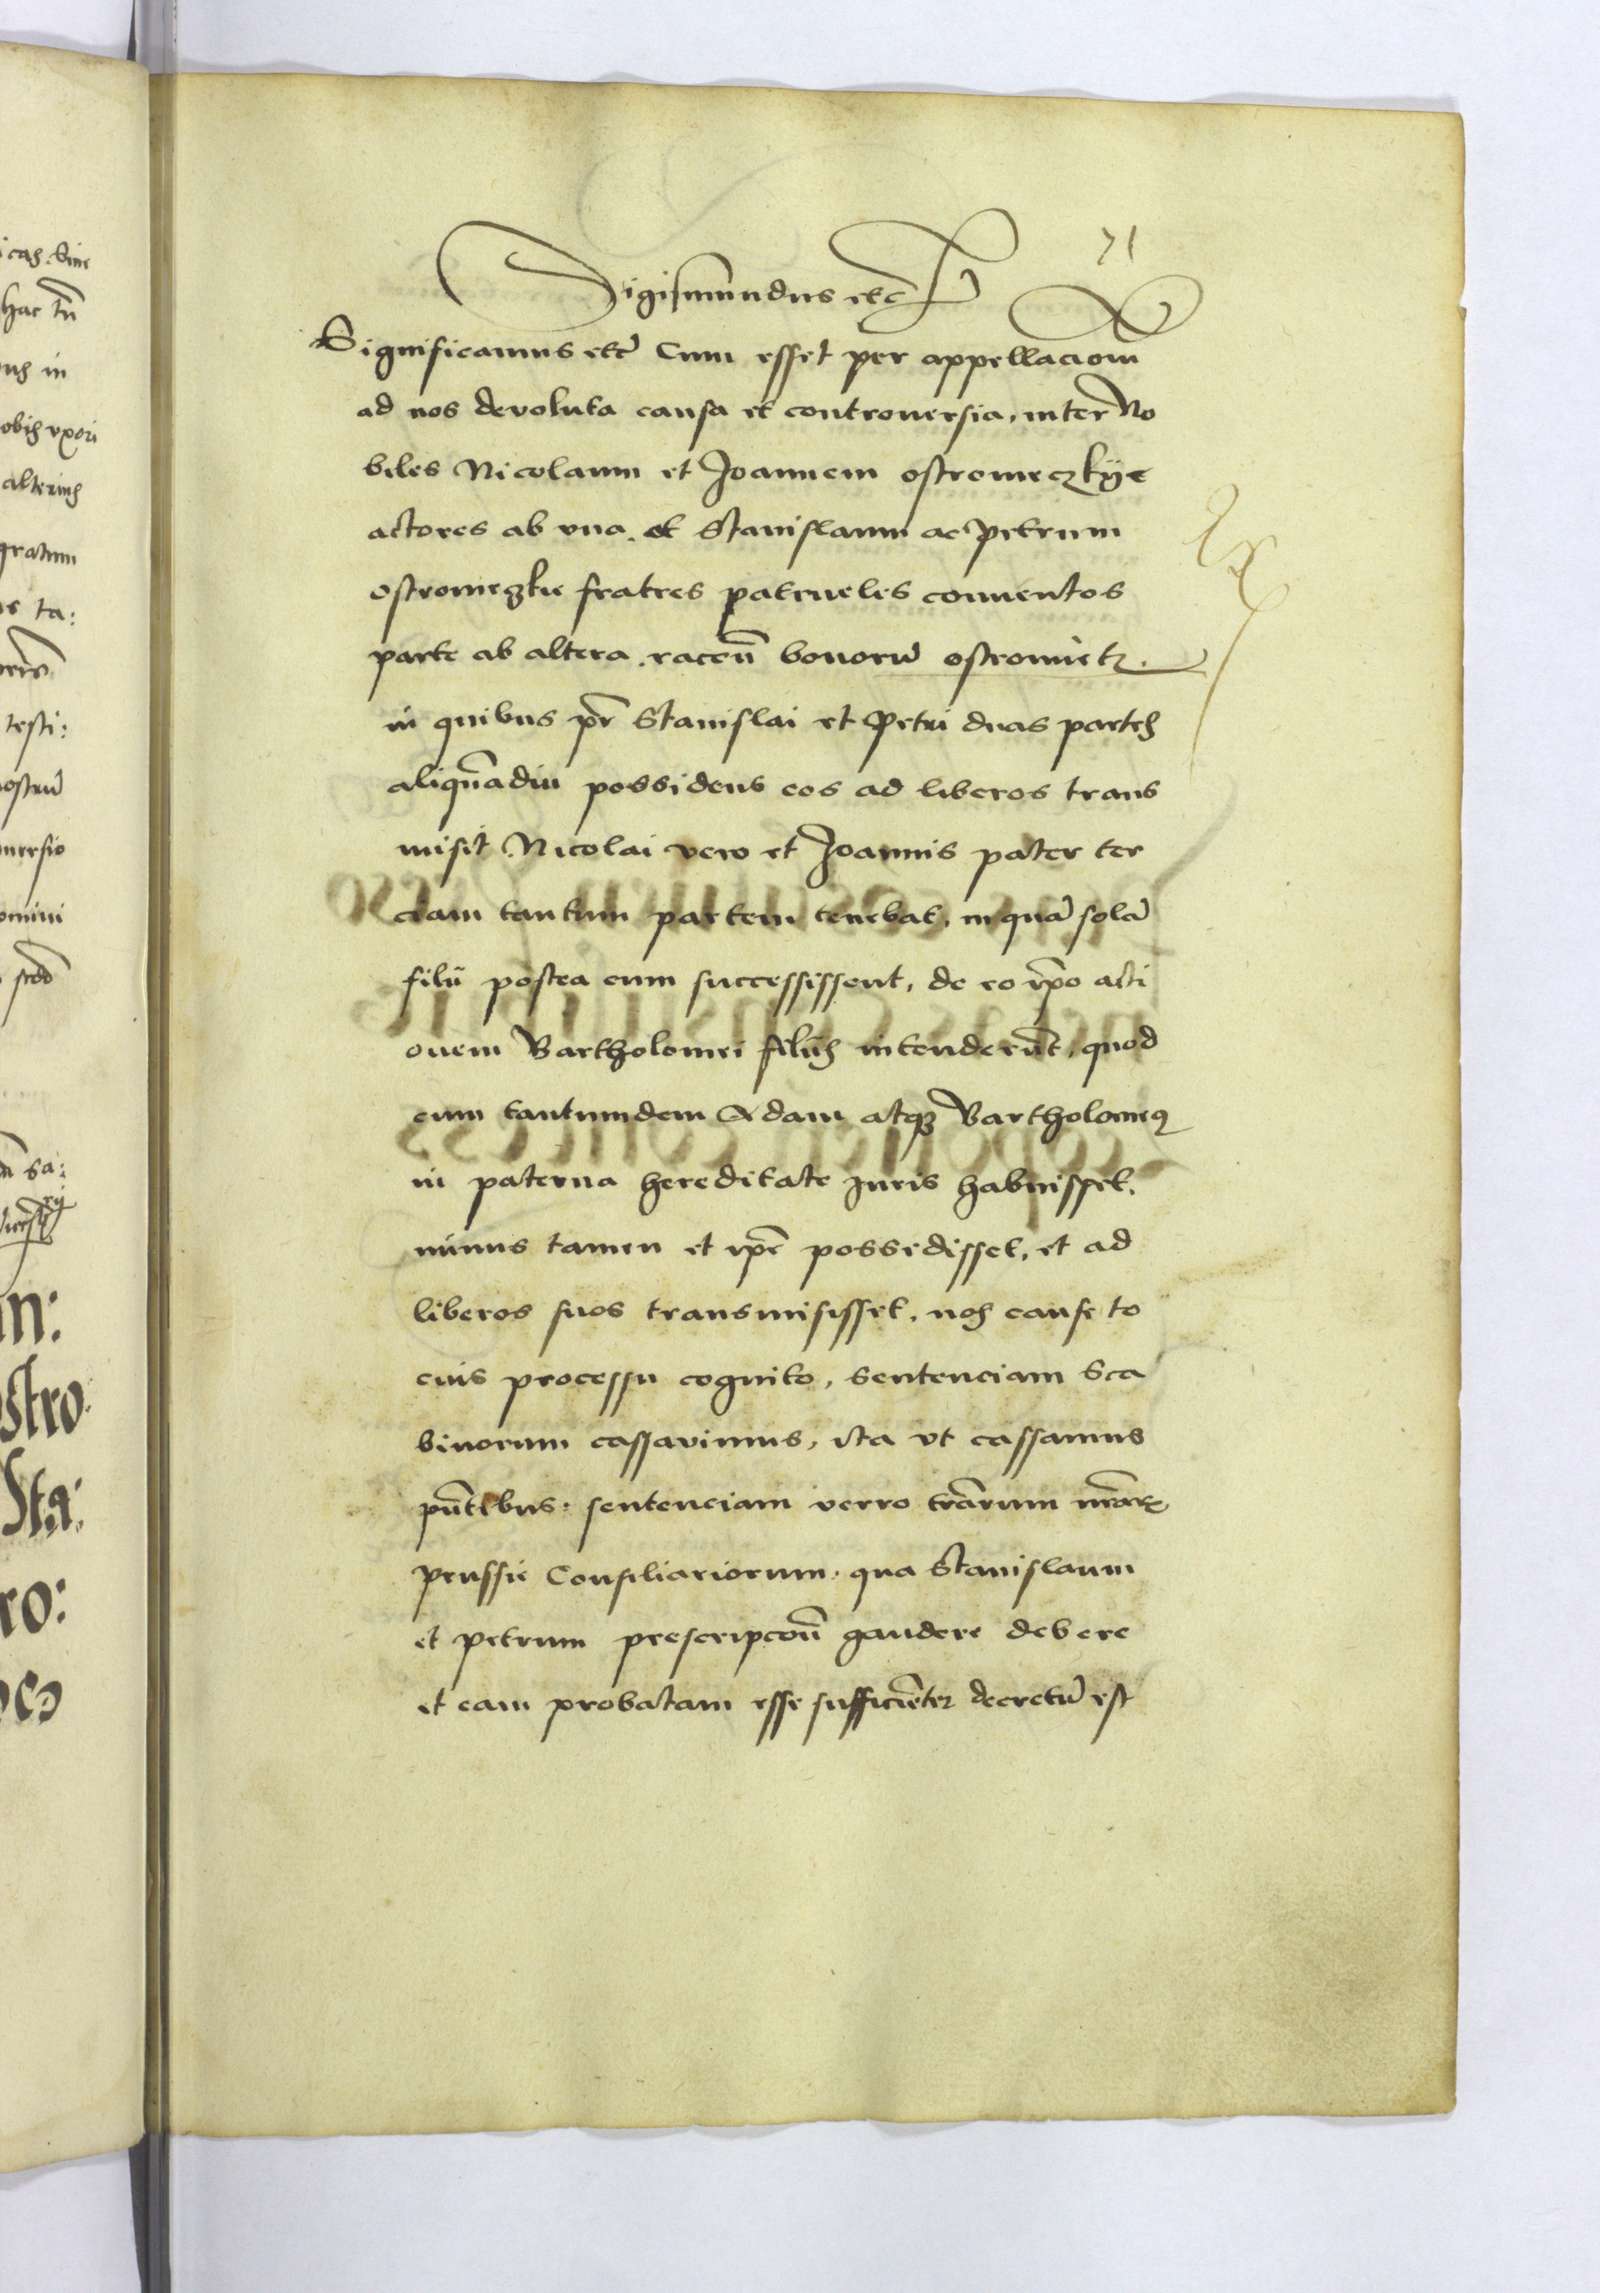 71
Sigismundus etc
Significamus etc Cum esset per appellacionem
ad nos devoluta causa et controuersia, inter No
biles Nicolaum et Joannem ostromeczkye
actores ab vna. et Stanislaum ac Petrum
ostromezkie fratres patrueles conuentos
parte ab altera. racōn bonorū ostromietz.
in quibus pr̄ Stanislai et Petri duas partes
aliqn̄adiu possidens eos ad liberos trans
misit Nicolai vero et Joannis pater ter
ciam tantum partem tenebat, in quā solā
filii postea cum successissent, de eo ip̄o acti
onem Bartholomei filiis intenderūt, quod
cum tantumdem Adam atqꝫ Bartholomeꝰ
in paterna hereditate Juris habuisset,
minus tamen et ip̄e possedisset, et ad
liberos suos transmisisset. nos cause to
cius processu cognito, sentenciam Sca
binorum cassavimus, ita vt cassamus
pn̄tibus: sentenciam verro trārum nr̄arꝝ
prussie Consiliariorum. qua Stanislaum
et petrum prescripcōn gaudere debere
et eam probatam esse sufficiēter decretū est